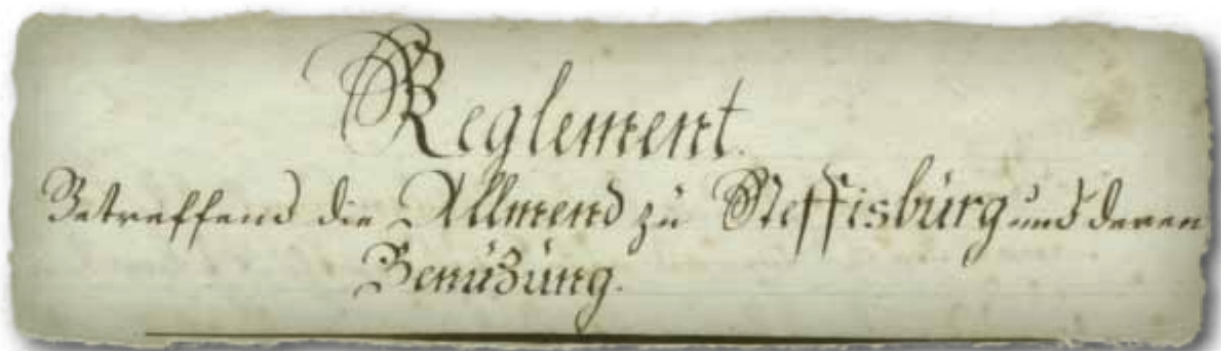 Reglement.
Betreffend die Allmend zu Steffisburg und deren
Benuzung.